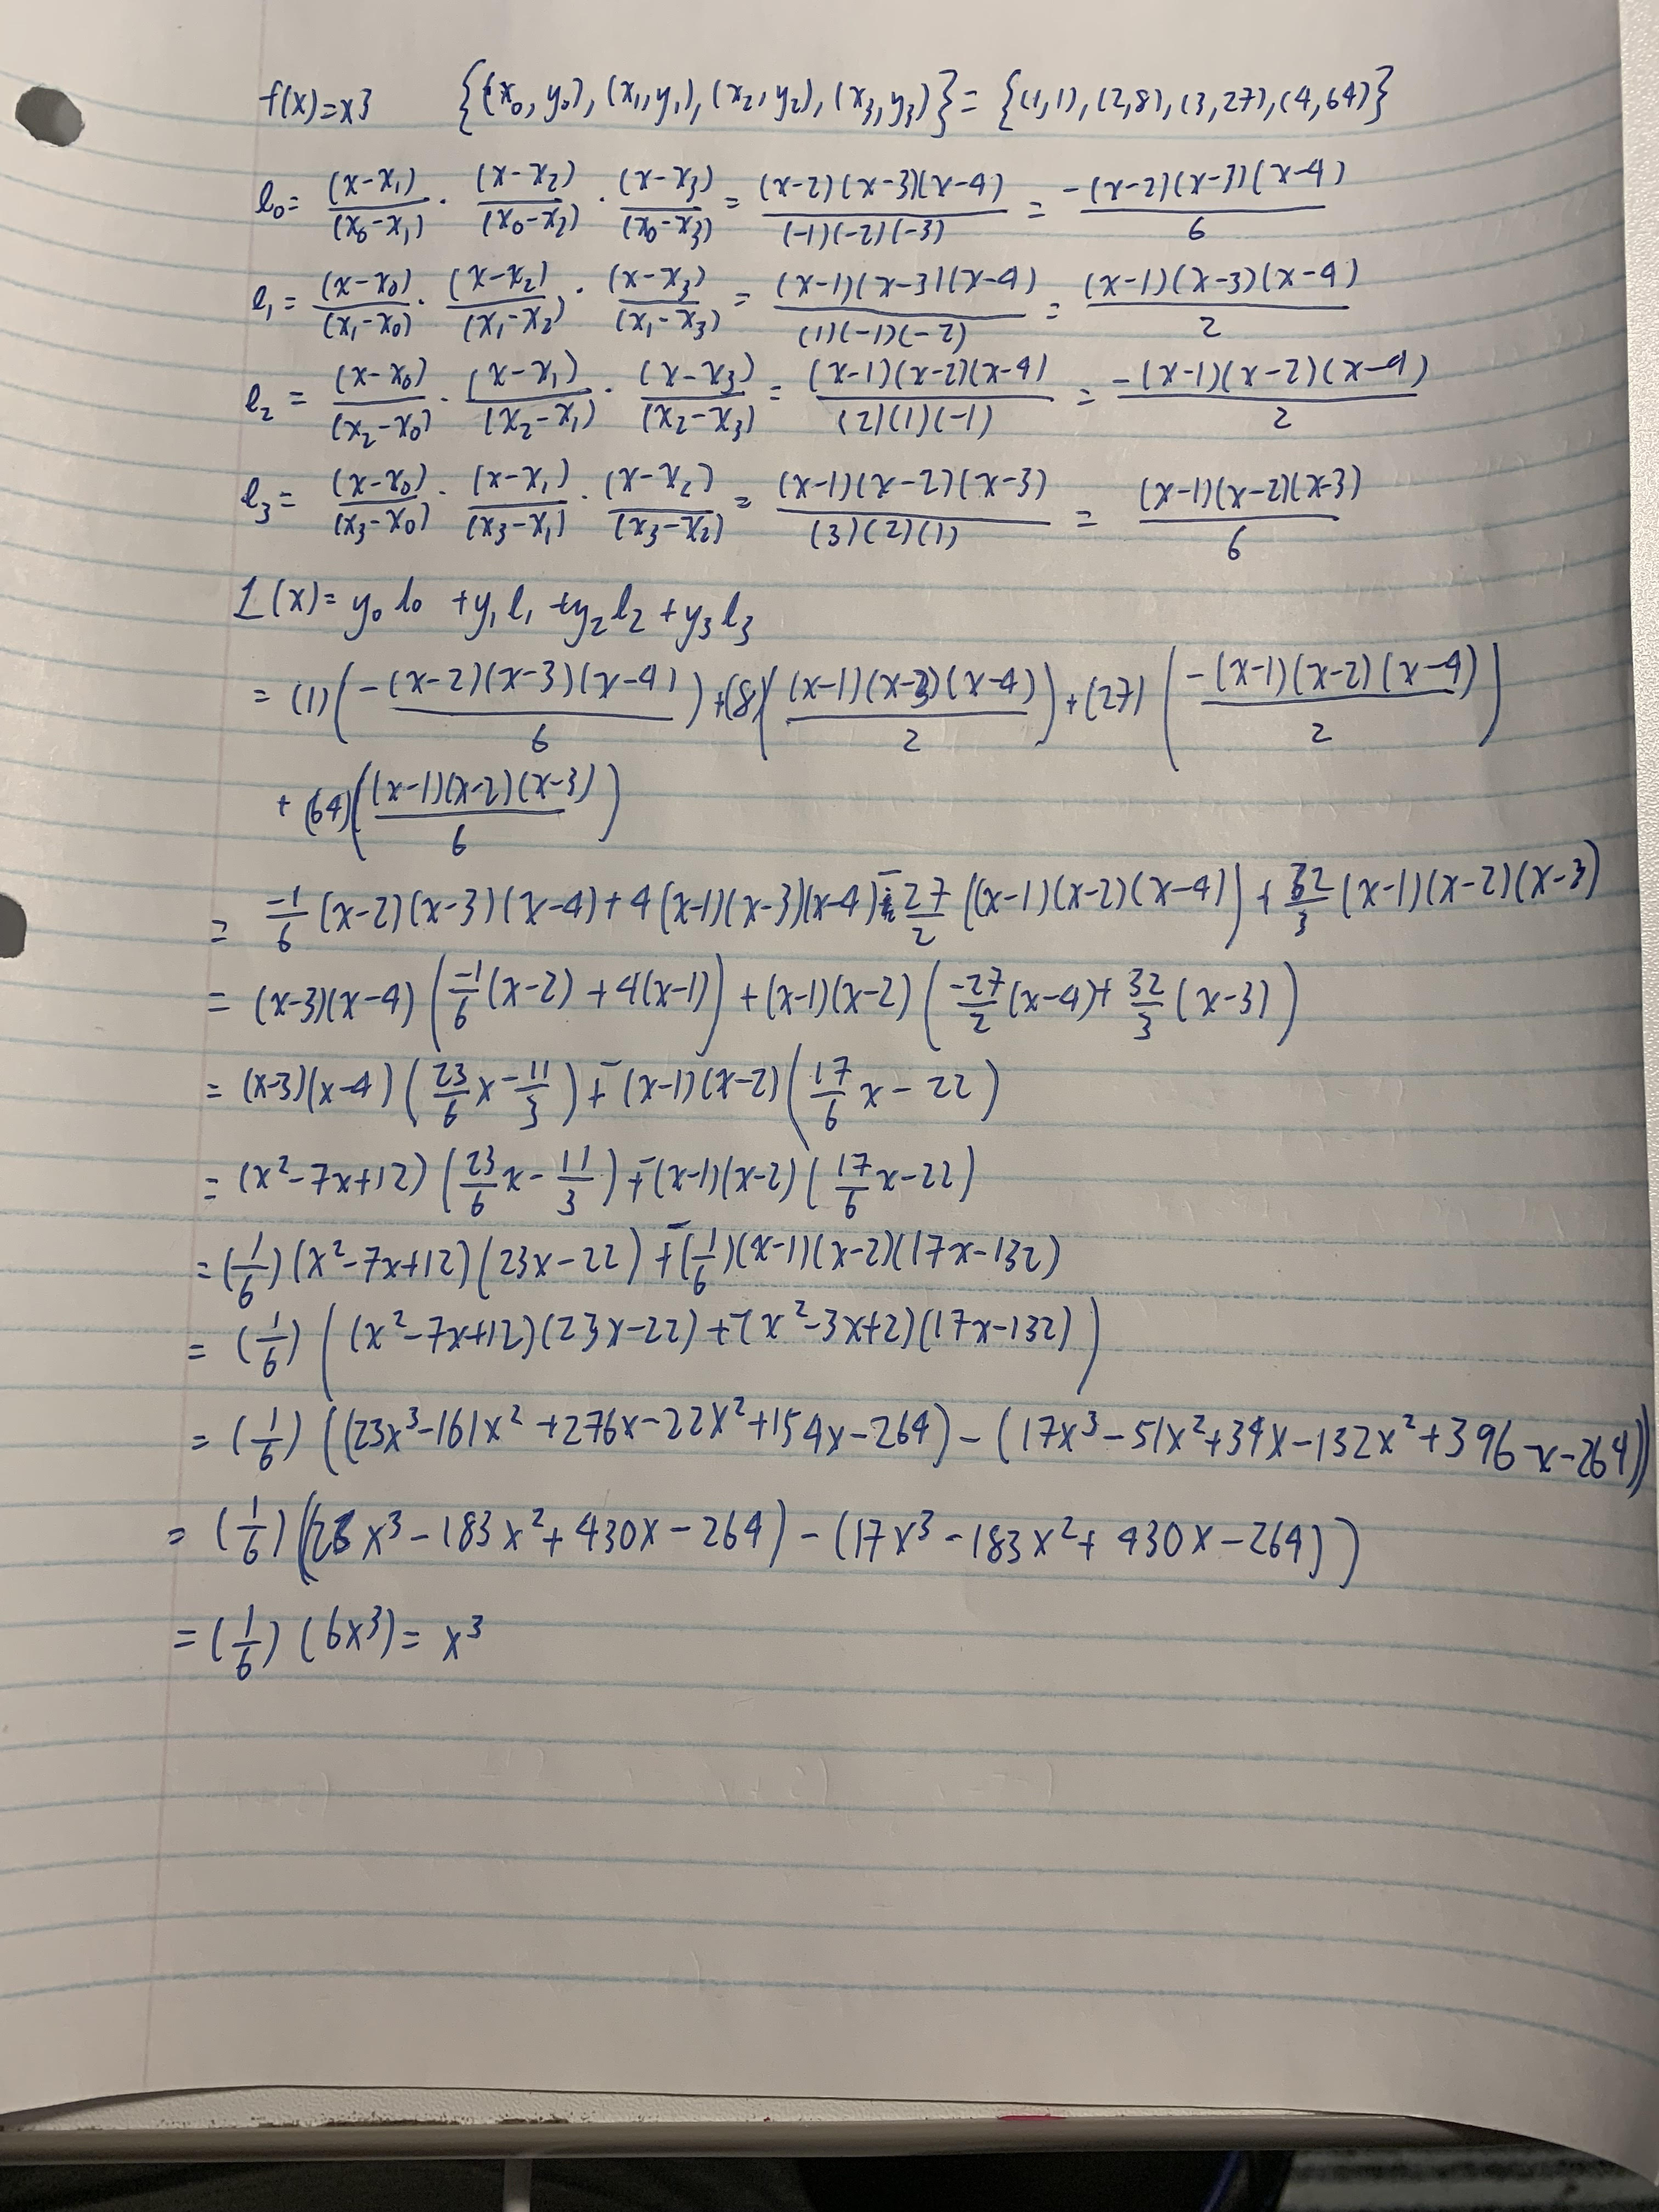 f(x)=x3 {(x₀, y₀), (x₁, y₁), (x₂, y₂), (x₃, y₃)} = {(1,1), (2,8), (3,27), (4,64)}
l₀ = (x-x₁)/(x₀-x₁) · (x-x₂)/(x₀-x₂) · (x-x₃)/(x₀-x₃) = (x-2)(x-3)(x-4)/(-1)(-2)(-3) = -(x-2)(x-3)(x-4)/6
l₁ = (x-x₀)/(x₁-x₀) · (x-x₂)/(x₁-x₂) · (x-x₃)/(x₁-x₃) = (x-1)(x-3)(x-4)/(1)(-1)(-2) = (x-1)(x-3)(x-4)/2
l₂ = (x-x₀)/(x₂-x₀) · (x-x₁)/(x₂-x₁) · (x-x₃)/(x₂-x₃) = (x-1)(x-2)(x-4)/(2)(1)(-1) = -(x-1)(x-2)(x-4)/2
l₃ = (x-x₀)/(x₃-x₀) · (x-x₁)/(x₃-x₁) · (x-x₂)/(x₃-x₂) = (x-1)(x-2)(x-3)/(3)(2)(1) = (x-1)(x-2)(x-3)/6
L(x) = y₀l₀ + y₁l₁ + y₂l₂ + y₃l₃
= (1)(-(x-2)(x-3)(x-4)/6) + (8)((x-1)(x-3)(x-4)/2) + (27)(-(x-1)(x-2)(x-4)/2)
+ (64)((x-1)(x-2)(x-3)/6)
= -1/6 (x-2)(x-3)(x-4) + 4(x-1)(x-3)(x-4) - 27/2 ((x-1)(x-2)(x-4)) + 32/3 (x-1)(x-2)(x-3)
= (x-3)(x-4) (-1/6 (x-2) + 4(x-1)) + (x-1)(x-2) (-27/2 (x-4) + 32/3 (x-3))
= (x-3)(x-4) (23/6 x - 11/3) + -(x-1)(x-2) (17/6 x - 22)
= (x²-7x+12) (23/6 x - 11/3) + -(x-1)(x-2) (17/6 x - 22)
= (1/6)(x²-7x+12)(23x-22) + -(1/6)(x-1)(x-2)(17x-132)
= (1/6) ((x²-7x+12)(23x-22) + -(x²-3x+2)(17x-132))
= (1/6) ((23x³-161x²+276x-22x²+154x-264) - (17x³-51x²+34x-132x²+396-x-264))
= (1/6) ((23x³-183x²+430x-264) - (17x³-183x²+430x-264))
= (1/6) (6x³) = x³